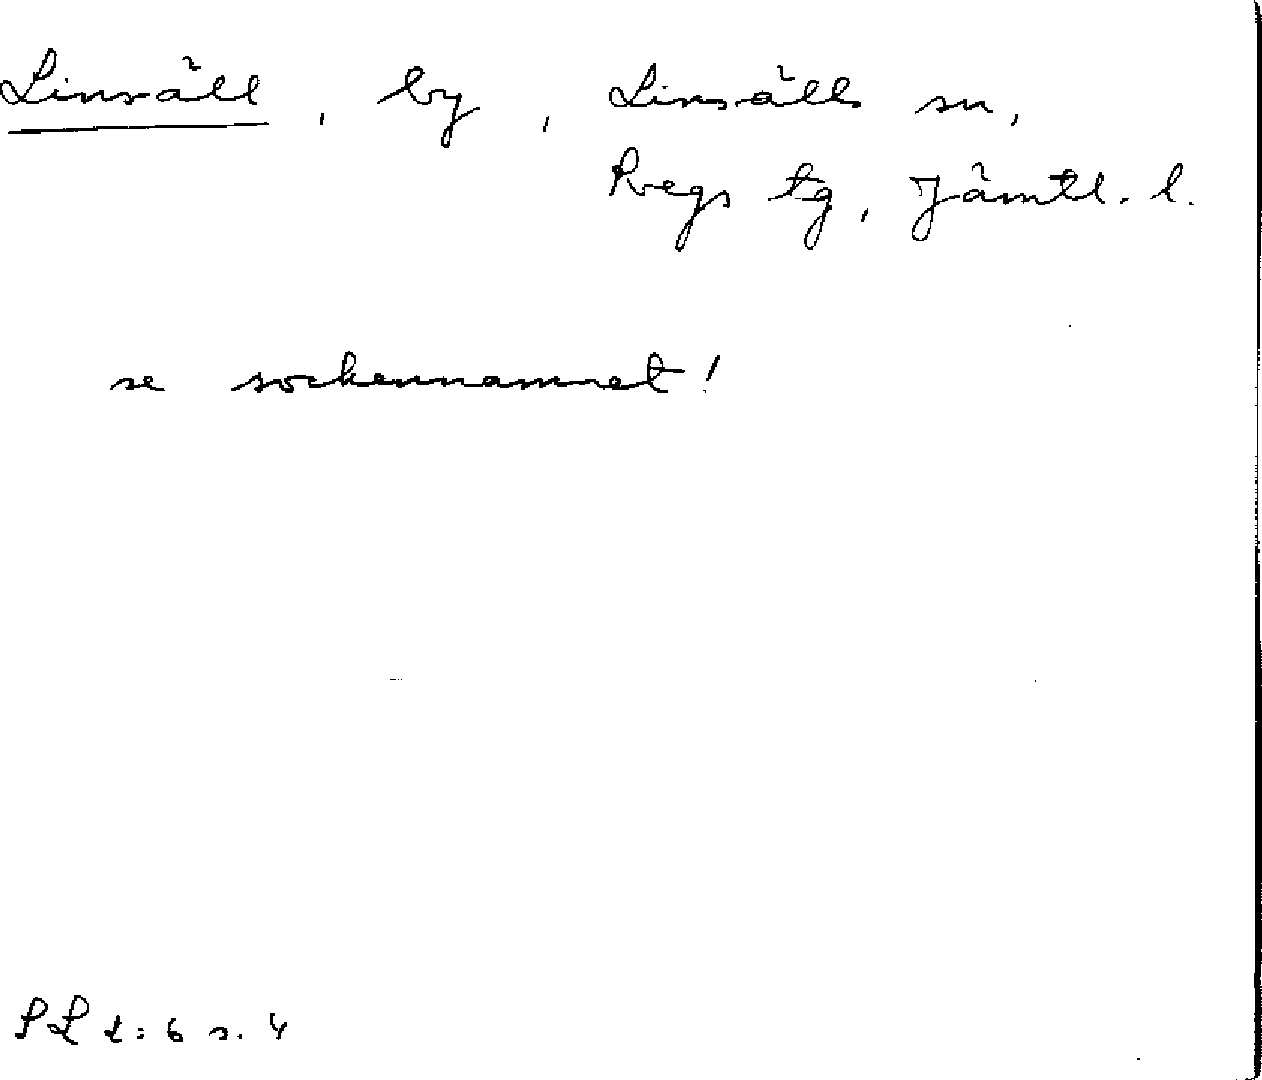 Linsäll, by, Linsälls sn,
Svegs tg, Jämtl. l.
se sockennamnet!
SL 2:6 s. 4